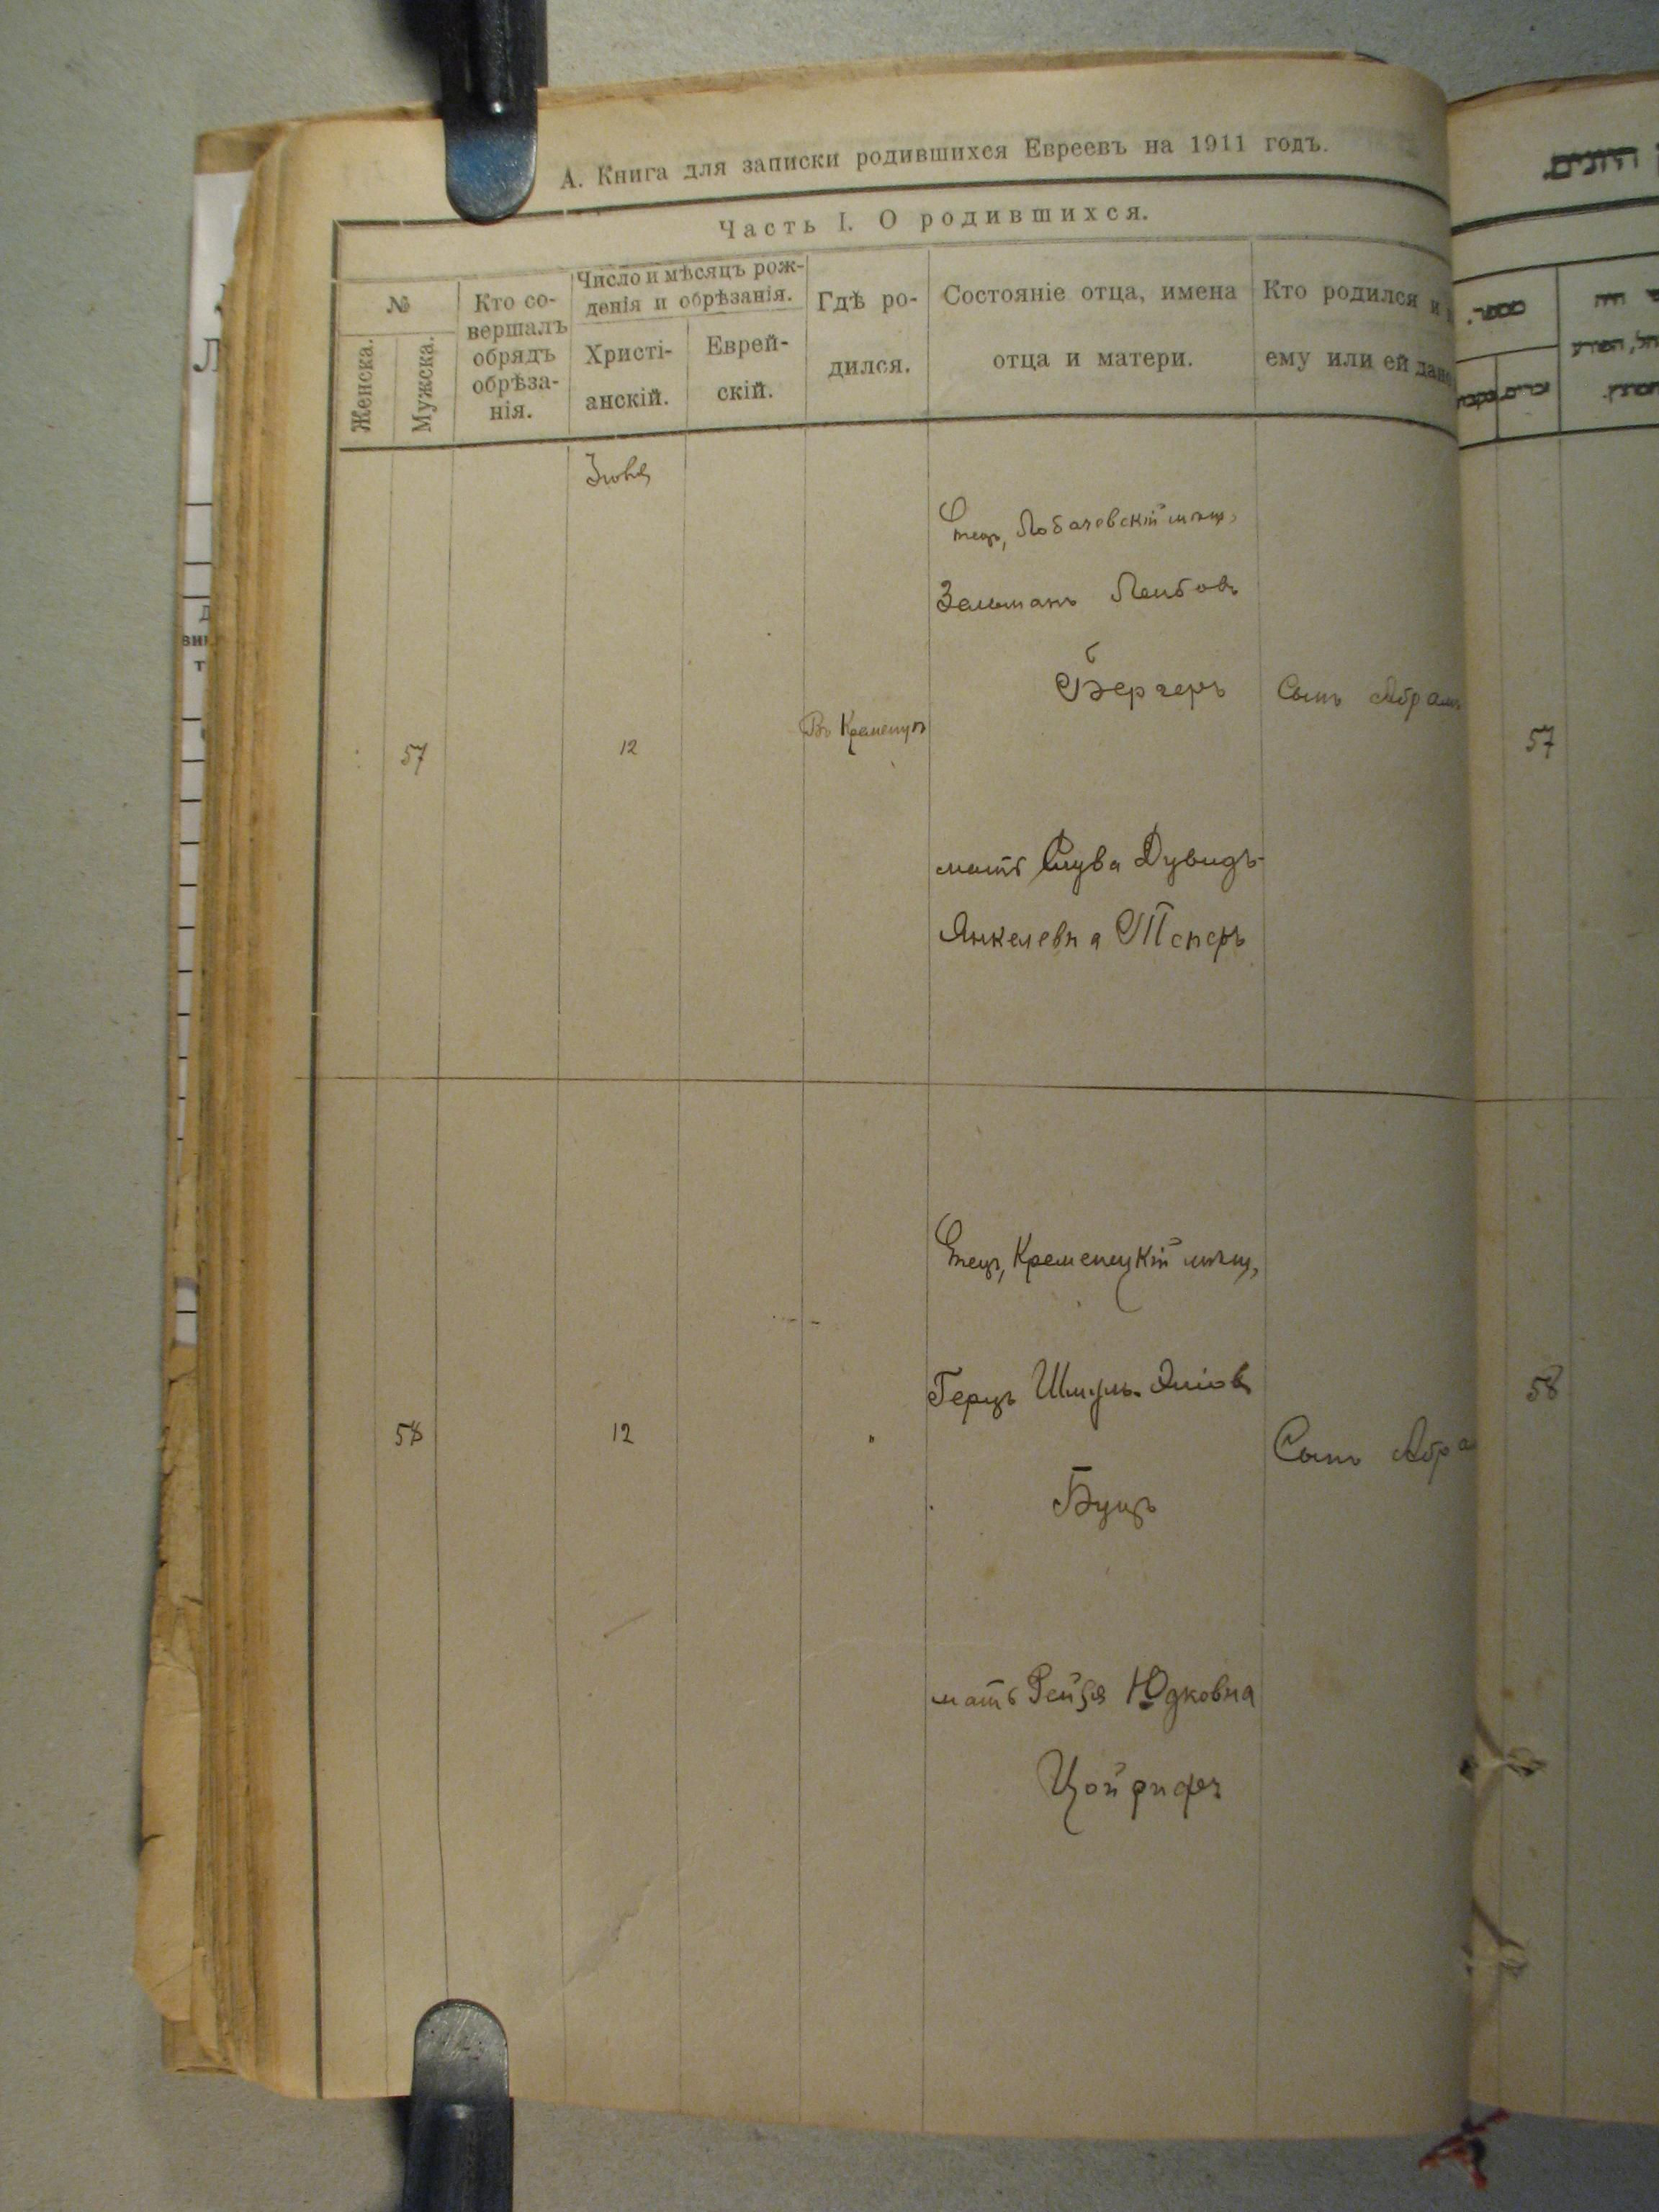 А. Книга для записки родившихся Евреевъ на 1911 годъ.
Часть I. О родившихся.
№
Женска.
Мужска.
Кто со-
вершалъ
обрядъ
обрѣза-
нія.
Число и мѣсяцъ рож-
денія и обрѣзанія.
Христі-
анскій.
Еврей-
скій.
Гдѣ ро-
дился.
Состояніе отца, имена
отца и матери.
Кто родился и
ему или ей дано
Іюня
57
12
Въ Кременцѣ
Отецъ, Лобачевскій мѣщ,
Зельманъ Лейбовъ
Бергеръ
мать Слува Дувидъ-
Янкелевна Теперъ
Сынъ Абрамъ
57
58
12
"
Отецъ, Кременецкій мѣщ,
Герцъ Шмуль-Эліовъ
Буцъ
мать Рейзя Юдковна
Цойрифъ
Сынъ Абра
58